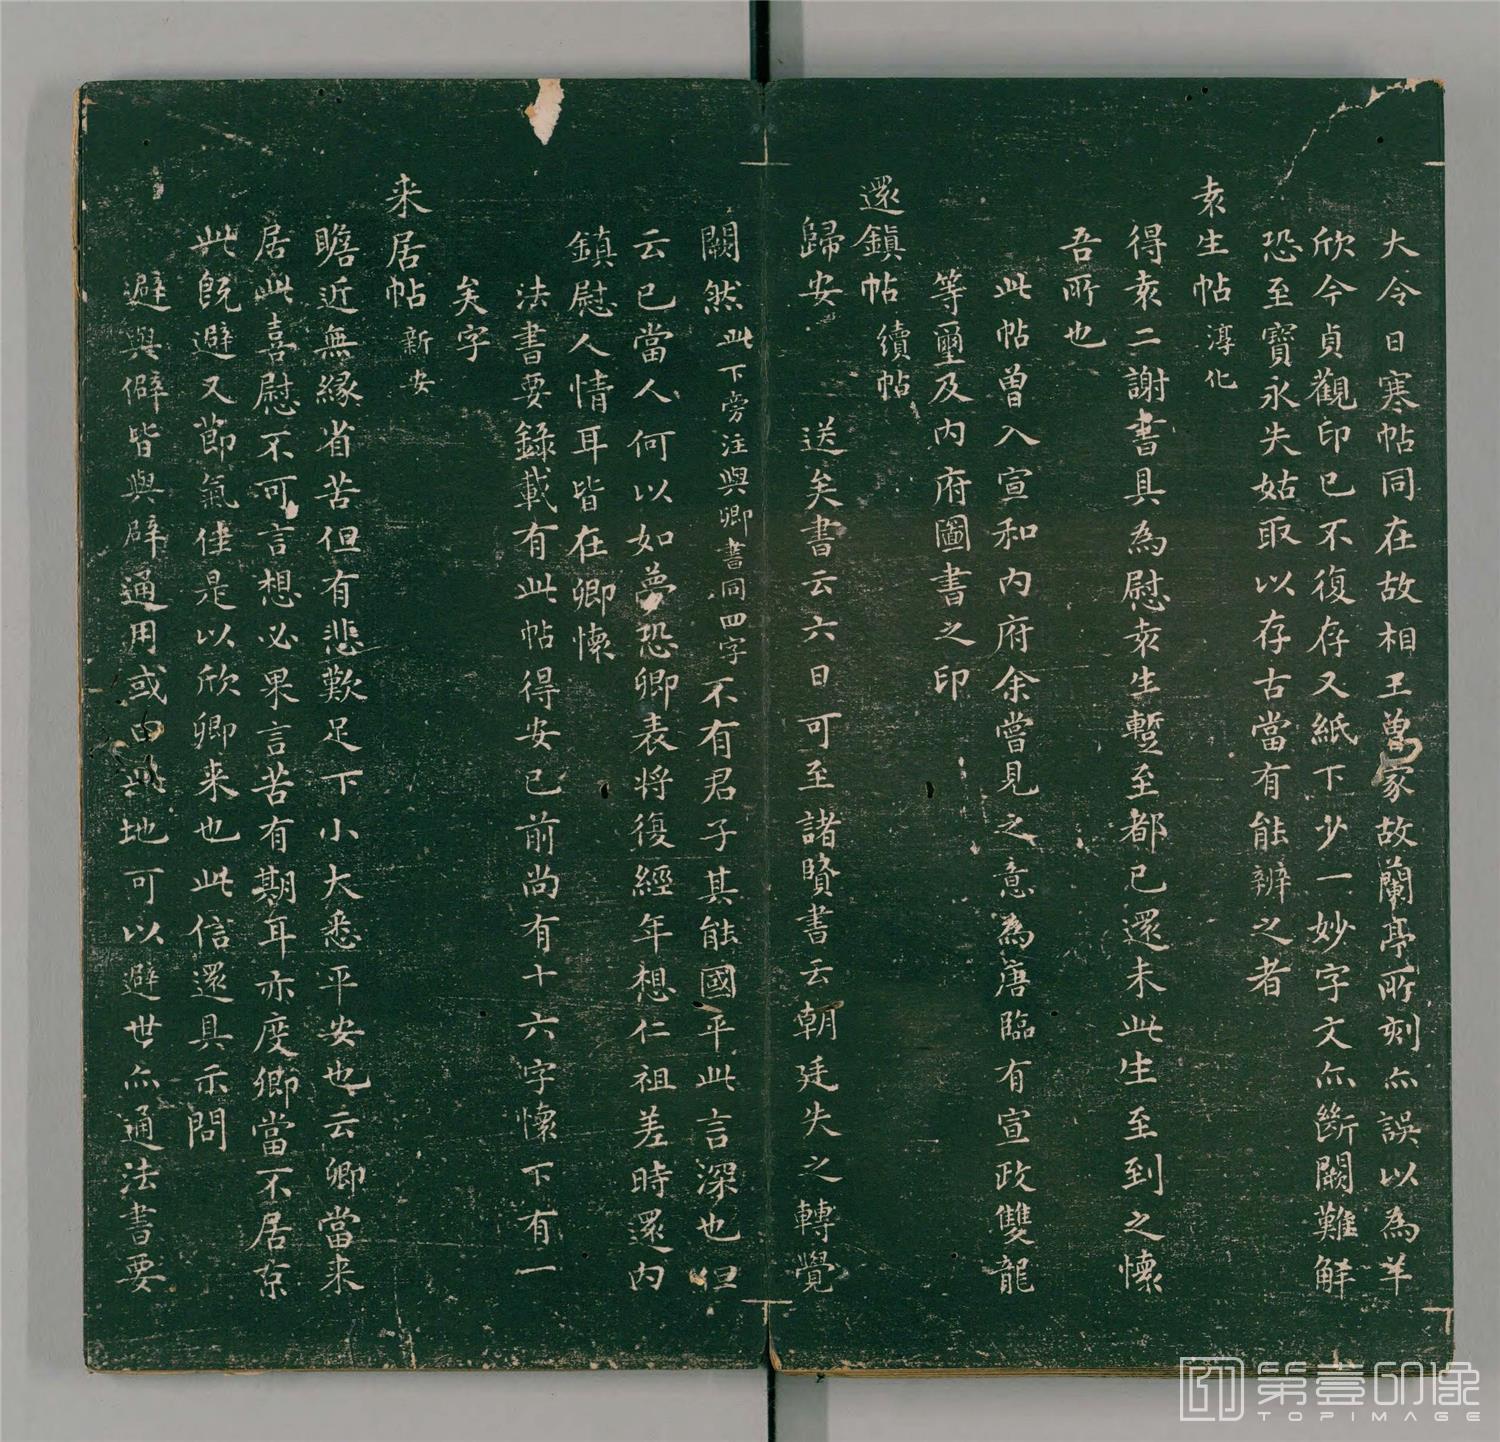 大令日寒帖同在故相王曾家故蘭亭所刻亦誤以為羊
欣今貞觀印已不復存又紙下少一妙字文亦斷闕難解
恐至寶永失姑取以存古當有能辨之者
袁生帖 淳化
得袁二謝書具為慰袁生蹔至都已還未此生至到之懷
吾所也
此帖曾入宣和內府余嘗見之意為唐臨有宣政雙龍
等璽及內府圖書之印
還鎮帖 續帖
歸安 送矣書云六日可至諸賢書云朝廷失之轉覺
闕然此下旁注與卿書同四字不有君子其能國乎此言深也但
云已當人何以如夢恐卿表將復經年想仁祖差時還內
鎮慰人情耳皆在卿懷
法書要錄載有此帖得安已前尚有十六字懷下有一
矣字
来居帖 新安
瞻近無緣省苦但有悲歎足下小大悉平安也云卿當来
居此喜慰不可言想必果言苦有期耳亦度卿當不居京
此既避又節氣佳是以欣卿来也此信還具示問
避與僻皆與辟通用或曰此地可以避世亦通法書要
第壹印像
TOPIMAGE